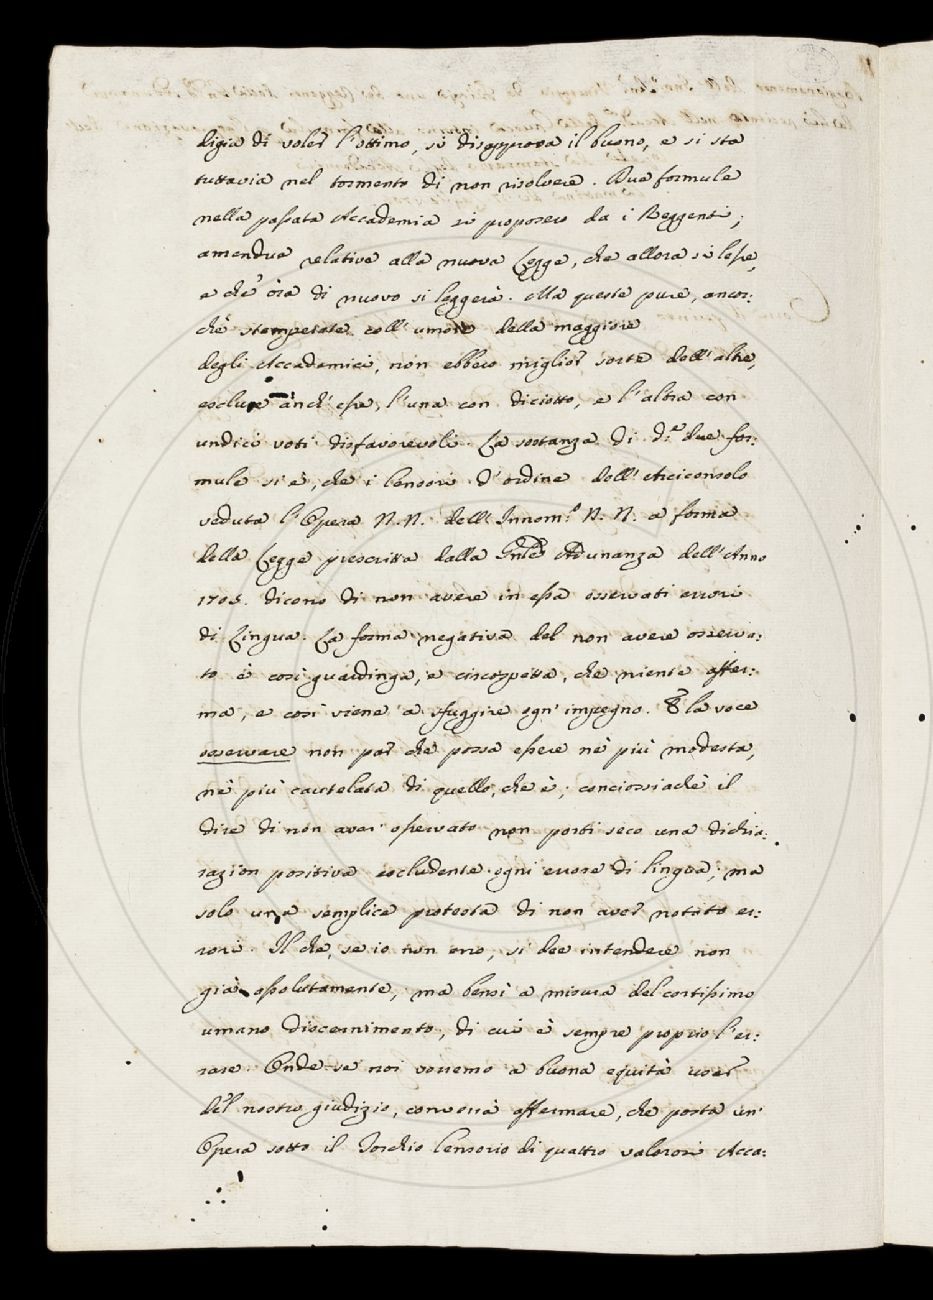 ligia di voler l'ottimo, si disapprova il buono, e si sta
tuttavia nel tormento di non risolvere. Due formule
nella passata Accademia si proposero da i Reggenti;
amendua relative alla nuova Legge, che allora si lesse,
e che òra di nuovo si leggerà. Ma queste pure, ancor:
chè stemperate coll'umore della maggiore
degli Accademici, non ebbero miglior sorte dell'altre,
escluse anch'esse, l'una con diciotto, e l'altra con
undici voti disfavorevoli. La sostanza di d.e due for:
mule si è, che i Censori d'ordine dell'Arciconsolo
veduta l'Opera N.N. dell'Innom.o N.N. a forma
della Legge prescritta dalla Adunanza dell'Anno
1705. dicono di non avere in essa osservati errori
di Lingua. La forma negativa del non avere osserva:
to è così guardinga, e circospetta, che niente affer:
ma, e così viene a sfuggire ogn'impegno. E la voce
osservare non par che possa essere nè più modesta,
nè più cautelata di quello, che è; conciossiachè il
dire di non aver osservato non porti seco una dichia:
razion positiva escludente ogni errore di lingua; ma
solo una semplice protesta di non aver notato er:
rori. Il che, se io non erro, si dee intendere non
già assolutamente, ma bensì a misura del cortissimo
umano discernimento, di cui è sempre proprio l'er:
rare. Onde se noi vorremo a buona equità user
del nostro giudizio, converrà affermare, che posta un'
Opera sotto il Torchio Censorio di quattro valorosi Acca: